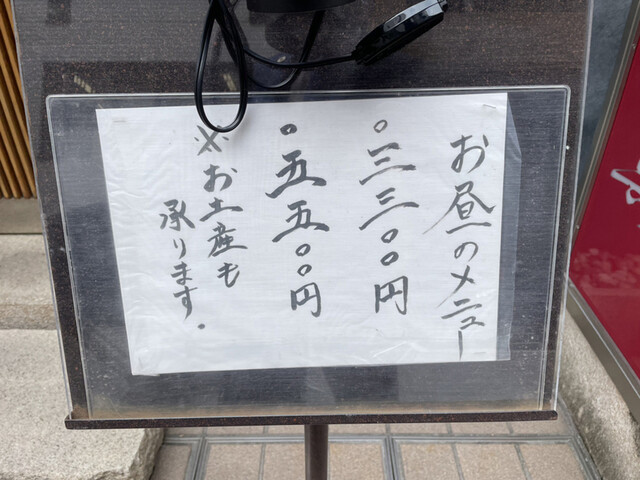 お昼のメニュー
。三三〇〇円
。五五〇〇円
※お土産も
承ります.